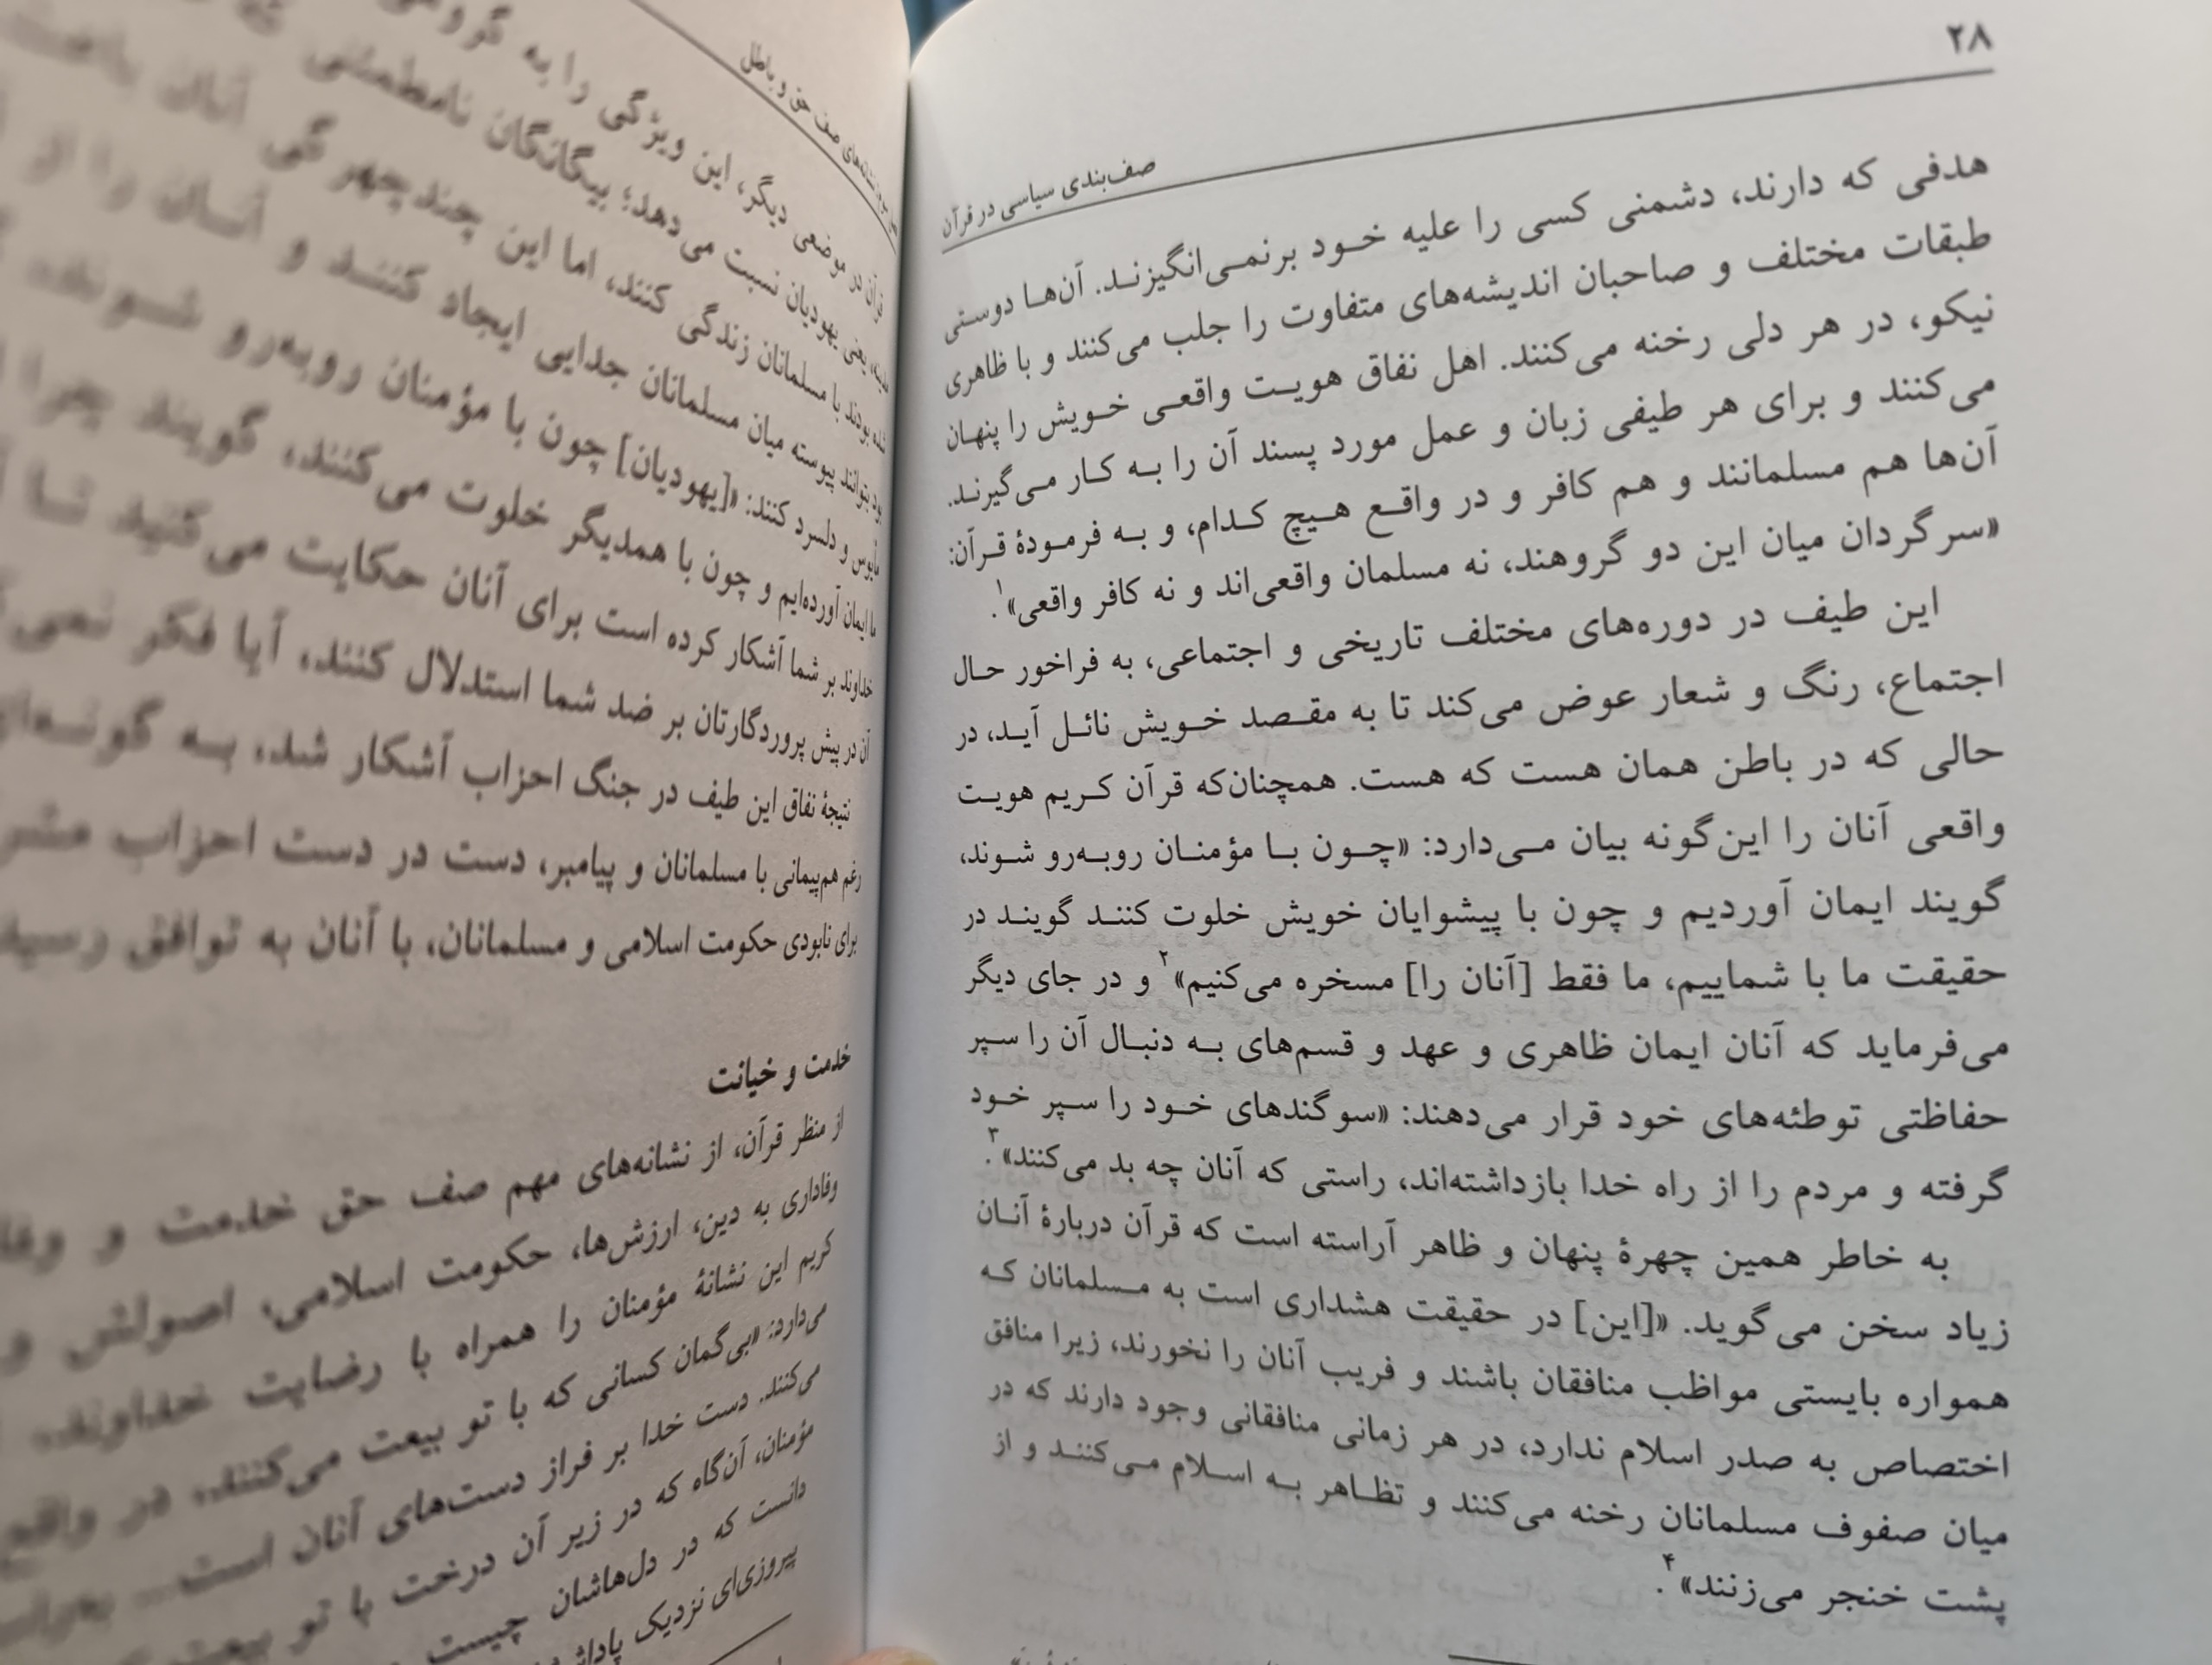 ۲۸
صف‌بندی سیاسی در قرآن
هدفی که دارند، دشمنی کسی را علیه خود برنمی‌انگیزند. آن‌ها دوستی
طبقات مختلف و صاحبان اندیشه‌های متفاوت را جلب می‌کنند و با ظاهری
نیکو، در هر دلی رخنه می‌کنند. اهل نفاق هویت واقعی خویش را پنهان
می‌کنند و برای هر طیفی زبان و عمل مورد پسند آن را به کار می‌گیرند.
آن‌ها هم مسلمانند و هم کافر و در واقع هیچ کدام، و به فرمودهٔ قرآن:
«سرگردان میان این دو گروهند، نه مسلمان واقعی‌اند و نه کافر واقعی»۱.
این طیف در دوره‌های مختلف تاریخی و اجتماعی، به فراخور حال
اجتماع، رنگ و شعار عوض می‌کند تا به مقصد خویش نائل آید، در
حالی که در باطن همان هست که هست. همچنان‌که قرآن کریم هویت
واقعی آنان را این‌گونه بیان می‌دارد: «چون با مؤمنان روبه‌رو شوند،
گویند ایمان آوردیم و چون با پیشوایان خویش خلوت کنند گویند در
حقیقت ما با شماییم، ما فقط [آنان را] مسخره می‌کنیم»۲ و در جای دیگر
می‌فرماید که آنان ایمان ظاهری و عهد و قسم‌های به دنبال آن را سپر
حفاظتی توطئه‌های خود قرار می‌دهند: «سوگندهای خود را سپر خود
گرفته و مردم را از راه خدا بازداشته‌اند، راستی که آنان چه بد می‌کنند»۳.
به خاطر همین چهرهٔ پنهان و ظاهر آراسته است که قرآن دربارهٔ آنان
زیاد سخن می‌گوید. «[این] در حقیقت هشداری است به مسلمانان که
همواره بایستی مواظب منافقان باشند و فریب آنان را نخورند، زیرا منافق
اختصاص به صدر اسلام ندارد، در هر زمانی منافقانی وجود دارند که در
میان صفوف مسلمانان رخنه می‌کنند و تظاهر به اسلام می‌کنند و از
پشت خنجر می‌زنند»۴.
صف حق و باطل
قرآن در موضعی دیگر، این ویژگی را به
یعنی یهودیان نسبت می‌دهد؛ بیگانگان نامطمئنی
شده بودند با مسلمانان زندگی کنند، اما این چندچهرگی آنان
بتوانند پیوسته میان مسلمانان جدایی ایجاد کنند و آنان را از
مأیوس و دلسرد کنند: «[یهودیان] چون با مؤمنان روبه‌رو شوند
ما ایمان آورده‌ایم و چون با همدیگر خلوت می‌کنند، گویند چرا
خداوند بر شما آشکار کرده است برای آنان حکایت می‌کنید تا
آن در پیش پروردگارتان بر ضد شما استدلال کنند، آیا فکر
نتیجهٔ نفاق این طیف در جنگ احزاب آشکار شد، به
رغم هم‌پیمانی با مسلمانان و پیامبر، دست در دست احزاب
برای نابودی حکومت اسلامی و مسلمانان، با آنان به توافق
خدمت و خیانت
از منظر قرآن، از نشانه‌های مهم صف حق خدمت و
وفاداری به دین، ارزش‌ها، حکومت اسلامی، اصولش و
کریم این نشانهٔ مؤمنان را همراه با رضایت خداوند،
می‌دارد: «بی‌گمان کسانی که با تو بیعت می‌کنند، در واقع
می‌کنند. دست خدا بر فراز دست‌های آنان است...
مؤمنان، آن‌گاه که در زیر آن درخت با تو بیعت
دانست که در دل‌هاشان چیست
پیروزی‌ای نزدیک